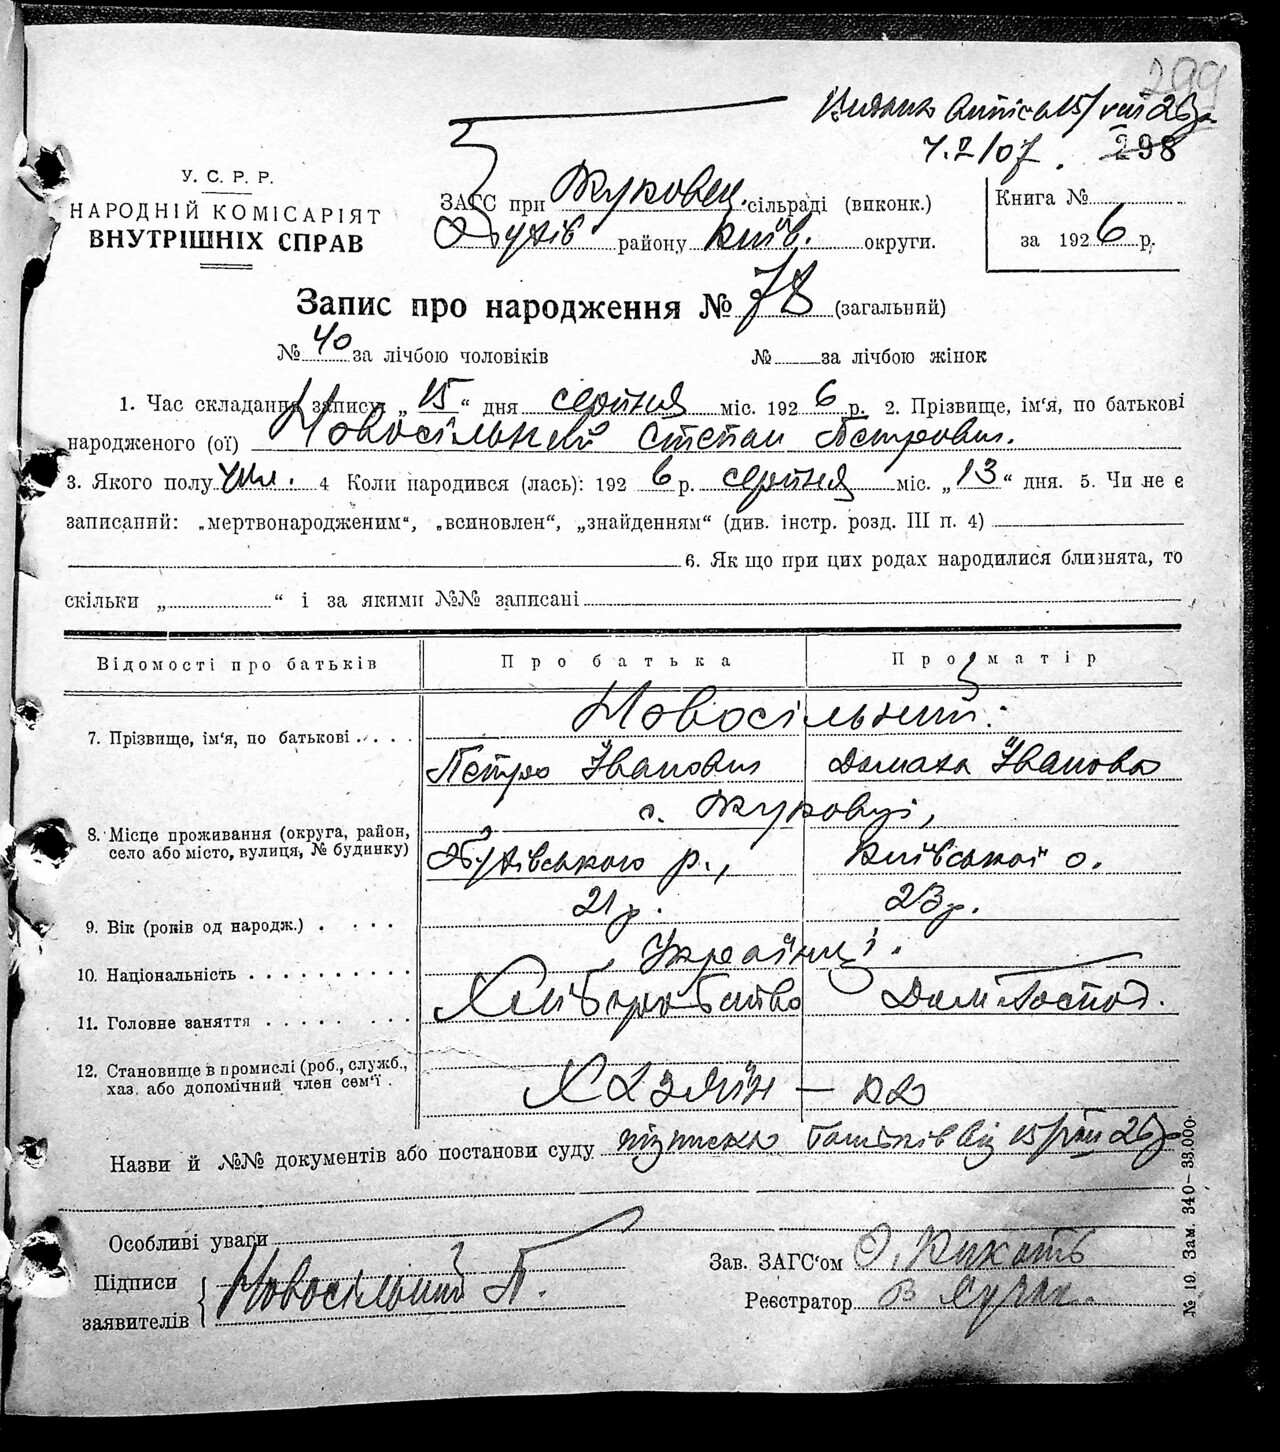 299
Видана виписка 15/VIII 26р.
298
У. С. Р. Р.
НАРОДНІЙ КОМІСАРІЯТ
ВНУТРІШНІХ СПРАВ
ЗАГС при Жуковец. сільраді (виконк.)
Обухів району Київ. округи.
Книга №
за 1926 р.
Запис про народження № 78 (загальний)
№ 40 за лічбою чоловіків № за лічбою жінок
1. Час складання запису: „ 15 “ дня серпня міс. 1926 р. 2. Прізвище, ім'я, по батькові
народженого (ої) Новосільний Степан Петрович.
3. Якого полу чол. 4 Коли народився (лась): 1926 р. серпня міс. „ 13 “ дня. 5. Чи не є
записаний: „мертвонародженим“, „всиновлен“, „знайденням“ (див. інстр. розд. III п. 4)
6. Як що при цих родах народилися близнята, то
скільки „ “ і за якими №№ записані
Відомості про батьків Про батька Про матір
Новосільний:
7. Прізвище, ім'я, по батькові . . . .
Петро Іванович Домаха Іванова
с. Жуковці,
8. Місце проживання (округа, район,
село або місто, вулиця, № будинку)
Обухівського р., Київської о.
21 р. 23 р.
9. Вік (років од народж.) . . . .
Українці.
10. Національність . . . . . . . . . .
Хліборобство Дом. Господ.
11. Головне заняття . . . . . . . .
12. Становище в промислі (роб., служб.,
хаз. або допомічний член сем'ї .
Хазяїн —
Назви й №№ документів або постанови суду підписка батьків від 15/VIII 26р
Особливі уваги
Підписи
заявителів
Новосільний П.
Зав. ЗАГС'ом
Реєстратор В
№ 19. Зам. 340—33.000.